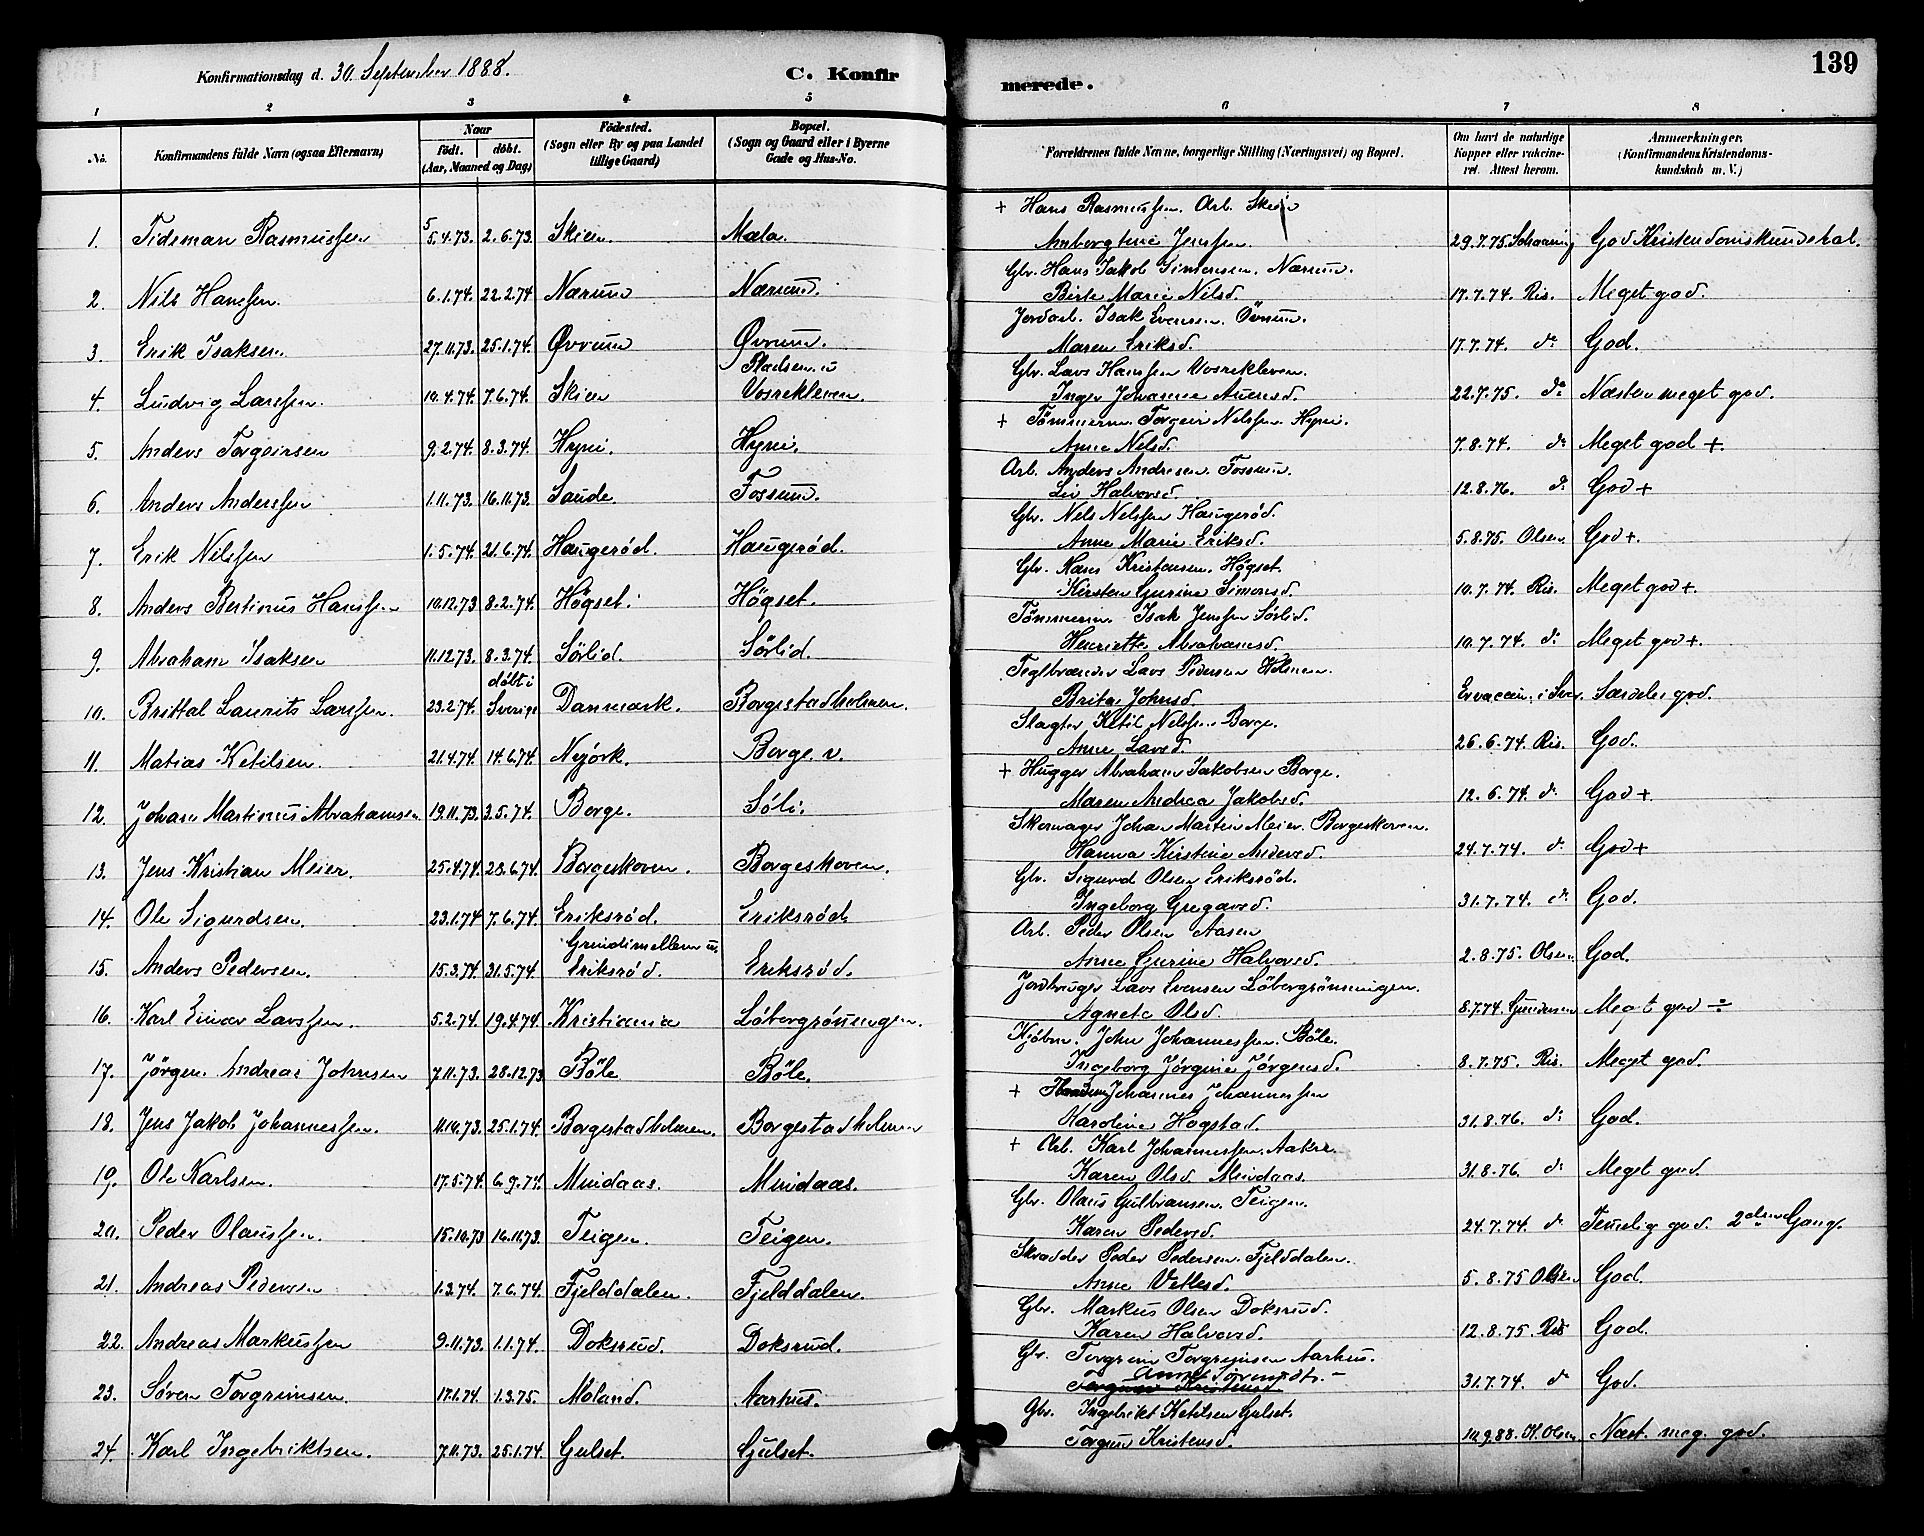 Konfirmationsdag d. 30. September 1888.
C. Konfir
merede.
139
1 2 3 4 5 6 7 8
No.
Konfirmandens fulde Navn (ogsaa Efternavn)
Naar
født. døbt.
(Aar, Maaned og Dag)
Fødested.
(Sogn eller By og paa Landet
tillige Gaard)
Bopæl.
(Sogn og Gaard eller i Byerne
Gade og Hus-No.
Forældrenes fulde Navne, borgerlige Stilling (Næringsvei) og Bopæl.
Om havt de naturlige
Kopper eller vakcine-
ret. Attest herom.
Anmerkninger.
(Konfirmandens Kristendoms-
kundskab m. V.)
+ Hans Rasmussen. Arb. Skien
1. Tideman Rasmussen 5.4.73. 2.6.73. Skien. Mæla. Amborgtine Jenssen. 29.7.75. Schaaning God Kristendomskundskab.
Gbr. Hans Jakob Simonsen. Nærum.
2. Nils Hanssen. 6.1.74. 22.2.74 Nærum Nærum. Birte Marie Nilsd. 17.7.74. Ris. Meget god.
Jordarb. Isak Evensen. Övrum.
3. Erik Isaksen. 27.11.73. 25.1.74. Øvrum Øvrum. Maren Eriksd. 17.7.74. do God.
Gbr. Lars Hanssen Vosrekleven.
4. Ludvig Larssen. 10.4.74. 7.6.74. Skien Pladsen u Vosrekleven. Inger Johanne Amundsd. 22.7.75. do Næsten meget god.
+ Tömmerm. Torgeir Nilssen. Hyni.
5. Anders Torgeirsen 9.2.74. 8.3.74. Hyni. Hyni. Anne Nilsd. 7.8.74. do Meget god +
Arb. Anders Andresen. Fossum.
6. Anders Anderssen 1.11.73. 16.11.73. Saude. Fossum. Liv Halvorsd. 12.8.76. do God +
Gbr. Nels Nelssen Haugerød.
7. Erik Nilssen 1.5.74. 21.6.74. Haugerød. Haugerød. Anne Marie Eriksd. 5.8.75. Olsen God +.
Gbr. Hans Kristensen. Högset.
8. Anders Bertinus Hanssen 10.12.73 8.2.74. Högset. Högset. Kirsten Gurine Simonsd. 10.7.74. Ris. Meget god +.
Tömmerm. Isak Jenssen Sörlid.
9. Abraham Isaksen 11.12.73. 8.3.74. Sörlid. Sörlid. Henriette Abrahamsd. 10.7.74. do Meget god +.
Teglbrænder Lars Pedersen Holmen.
10. Brittal Laurits Larssen. 23.2.74. døbt i Sverige Danmark. Borgestadholmen. Brita Johnsd. Er vaccin. i Sver. Særdeles god.
Slagter Ketil Nelssen Borge.
11. Matias Ketilsen. 21.4.74. 14.6.74. Nejörk. Borge. v. Anne Larsd. 26.6.74. Ris. God.
+ Hugger Abraham Jakobsen Borge.
12. Johan Martinus Abrahamsen 19.11.73 3.5.74. Borge. Söli. Maren Andrea Jakobsd. 12.6.74. do God +
Skomager Johan Martin Meier. Borgeskoven.
13. Jens Kristian Meier. 25.4.74 28.6.74. Borgeskoven. Borgeskoven. Hanna Kirstine Andersd. 24.7.74. do God +
Gbr. Sigurd Olsen Eriksröd.
14. Ole Sigurdsen. 23.1.74 7.6.74. Eriksröd. Eriksröd. Ingeborg Gregarsd. 31.7.74. do God.
Arb. Peder Olsen Aasen
15. Anders Pedersen. 15.3.74 31.5.74. Grindimellem u. Eriksrød. Eriksrød. Anne Gurine Halvorsd. 2.8.75. Olsen God.
Jordbruger Lars Evensen Löbergröningen.
16. Karl Einar Larssen. 5.2.74. 19.4.74. Kristiania Löbergröningen. Agnete Olsd. 8.7.74 Gundersen Meget god ÷
Kjøbm. John Johannessen. Böle.
17. Jørgen Andreas Johnsen 7.11.73. 28.12.73 Böle Böle. Ingeborg Jørgine Jørgensd. 8.7.75. Ris. Meget god.
+ Johannes Johannessen
18. Jens Jakob Johannessen. 11.10.73. 25.1.74. Borgestadholmen. Borgestadholmen Karoline Hogstad. 31.8.76. do God.
+ Arb. Karl Johannessen. Aakre.
19. Ole Karlsen. 17.5.74 6.9.74. Mindaas. Mindaas. Karen Olsd. Mindaas. 31.8.76 do Meget god.
Gbr. Olaus Gulbransen. Teigen.
20. Peder Olaussen. 15.10.73 16.11.73. Teigen. Teigen. Karen Pedersd. 24.7.74. do Temelig god. 2den Gang.
Skrædder Peder Pedersen. Fjelddalen.
21. Andreas Pedersen 1.3.74. 7.6.74. Fjelddalen. Fjelddalen. Anne Vetlesd. 5.8.75 Olsen God.
Gbr. Markus Olsen Doksrud.
22. Andreas Markussen 9.11.73. 1.1.74. Doksrud. Doksrud. Karen Halvorsd. 12.8.75. Ris God.
Gbr. Torgrim Torgrimsen Aarhus.
23. Søren Torgrimsen. 17.1.74 1.3.75. Moland. Aarhus. Torgun Kristensd. 31.7.74. do God.
Gbr. Ingebrikt Ketilsen Gulset.
24. Karl Ingebriktsen. 7.11.73. 25.1.74. Gulset. Gulset. Torgun Kristensd. 10.9.88. K. Olsen. Næst. meg. god.